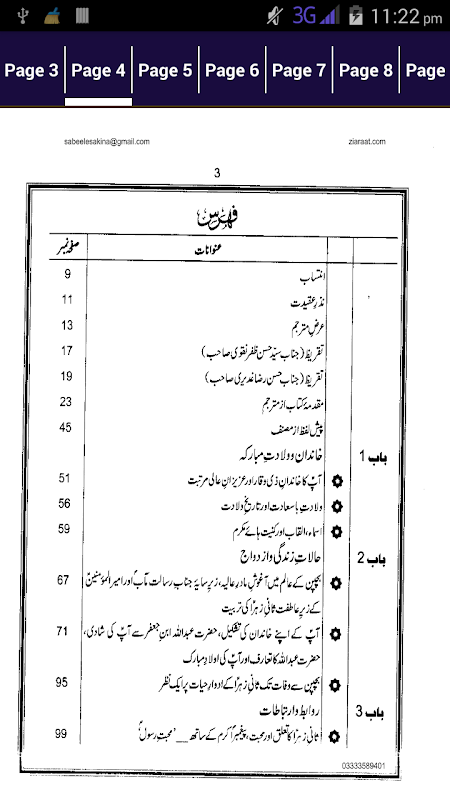 3G 11:22 pm
Page 3 Page 4 Page 5 Page 6 Page 7 Page 8 Page
sabeelesakina@gmail.com ziaraat.com
3
فہرس
عنوانات صفحہ نمبر
انتساب 9
نذرِ عقیدت 11
عرضِ مترجم 13
تقریظ (جناب سیّد حسن ظفر نقوی صاحب) 17
تقریظ (جناب حسن رضا غدیری صاحب) 19
مقدمۂ کتاب از مترجم 23
پیش لفظ از مصنف 45
باب 1 خاندان و ولادتِ مبارکہ
آپؑ کا خاندانِ ذی وقار اور عزیزانِ عالی مرتبت 51
ولادتِ باسعادت اور تاریخِ ولادت 56
اسماء، القاب اور کنیت ہائے مکرم 59
باب 2 حالاتِ زندگی و ازدواج
بچپن کے عالم میں آغوشِ مادرِ عالیہ، زیرِ سایۂ جناب رسالت مآبؐ اور امیر المؤمنینؑ 67
کے زیرِ عاطفت ثانیِ زہراؑ کی تربیت
آپؑ کے اپنے خاندان کی تشکیل، حضرت عبداللہ ابنِ جعفر سے آپؑ کی شادی، 71
حضرت عبداللہ کا تعارف اور آپؑ کی اولادِ مبارک
بچپن سے وفات تک ثانیِ زہراؑ کے ادوارِ حیات پر ایک نظر 95
باب 3 روابط و ارتباطات
ثانیِ زہراؑ کا تعلق اور محبت، پیغمبرِ اکرمؐ کے ساتھ __ ’محبتِ رسولؐ‘ 99
03333589401